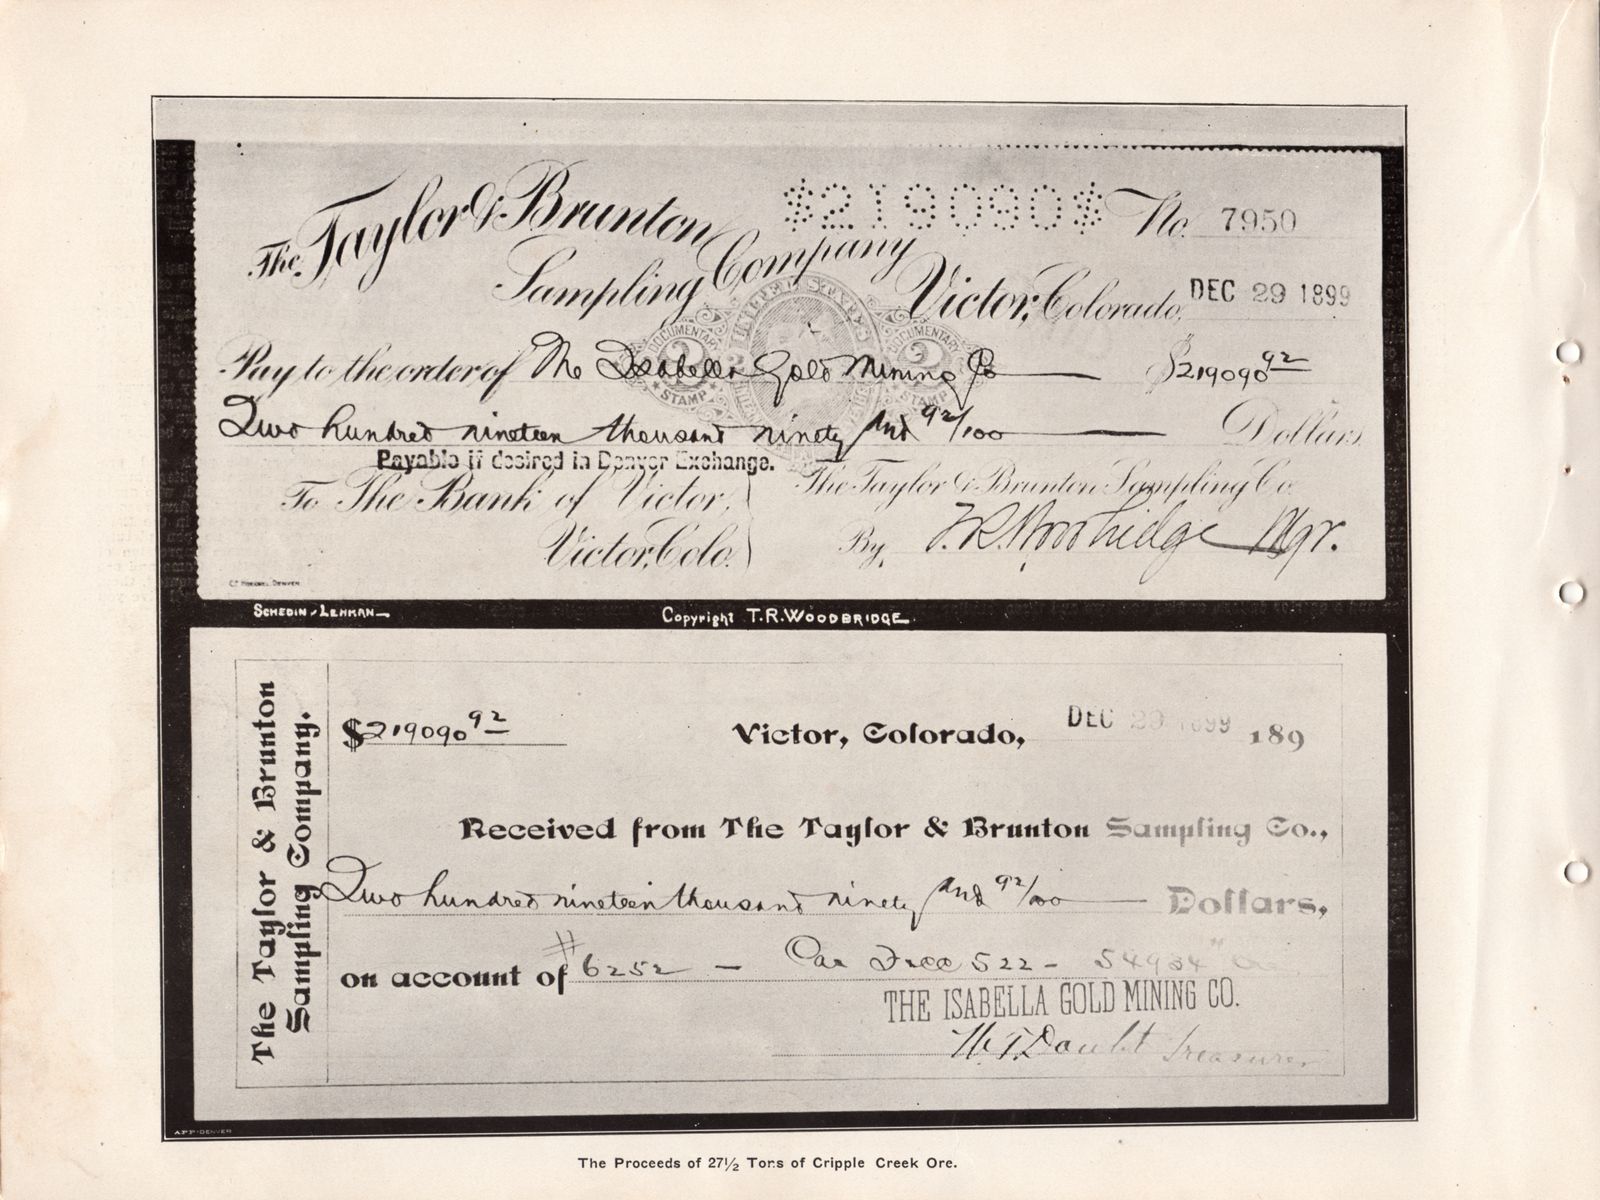 $219090$
No. 7950
The Taylor & Brunton
Sampling Company
Victor, Colorado, DEC 29 1899
INTERNAL REVENUE
DOCUMENTARY 2 STAMP
DOCUMENTARY 2 STAMP
Pay to the order of The Isabella Gold Mining Co $219090 92
Two hundred nineteen thousand ninety and 92/100 Dollars
Payable if desired in Denver Exchange.
To The Bank of Victor,
Victor, Colo.
The Taylor & Brunton Sampling Co.
By, T.R. Woodbridge Mgr.
Schedin-Lehman
Copyright T.R. Woodbridge
The Taylor & Brunton
Sampling Company.
$219090 92
Victor, Colorado, DEC 29 1899 189
Received from The Taylor & Brunton Sampling Co.,
Two hundred nineteen thousand ninety and 92/100 Dollars,
on account of #6252 – Car 522 – 54934
THE ISABELLA GOLD MINING CO.
W.T. Doubt Treasurer
APP-DENVER
The Proceeds of 27½ Tons of Cripple Creek Ore.